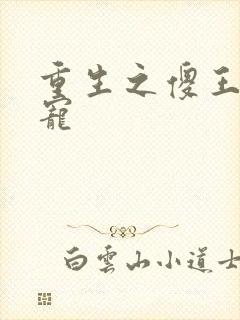 重生之傻王
寵
白雲山小道士